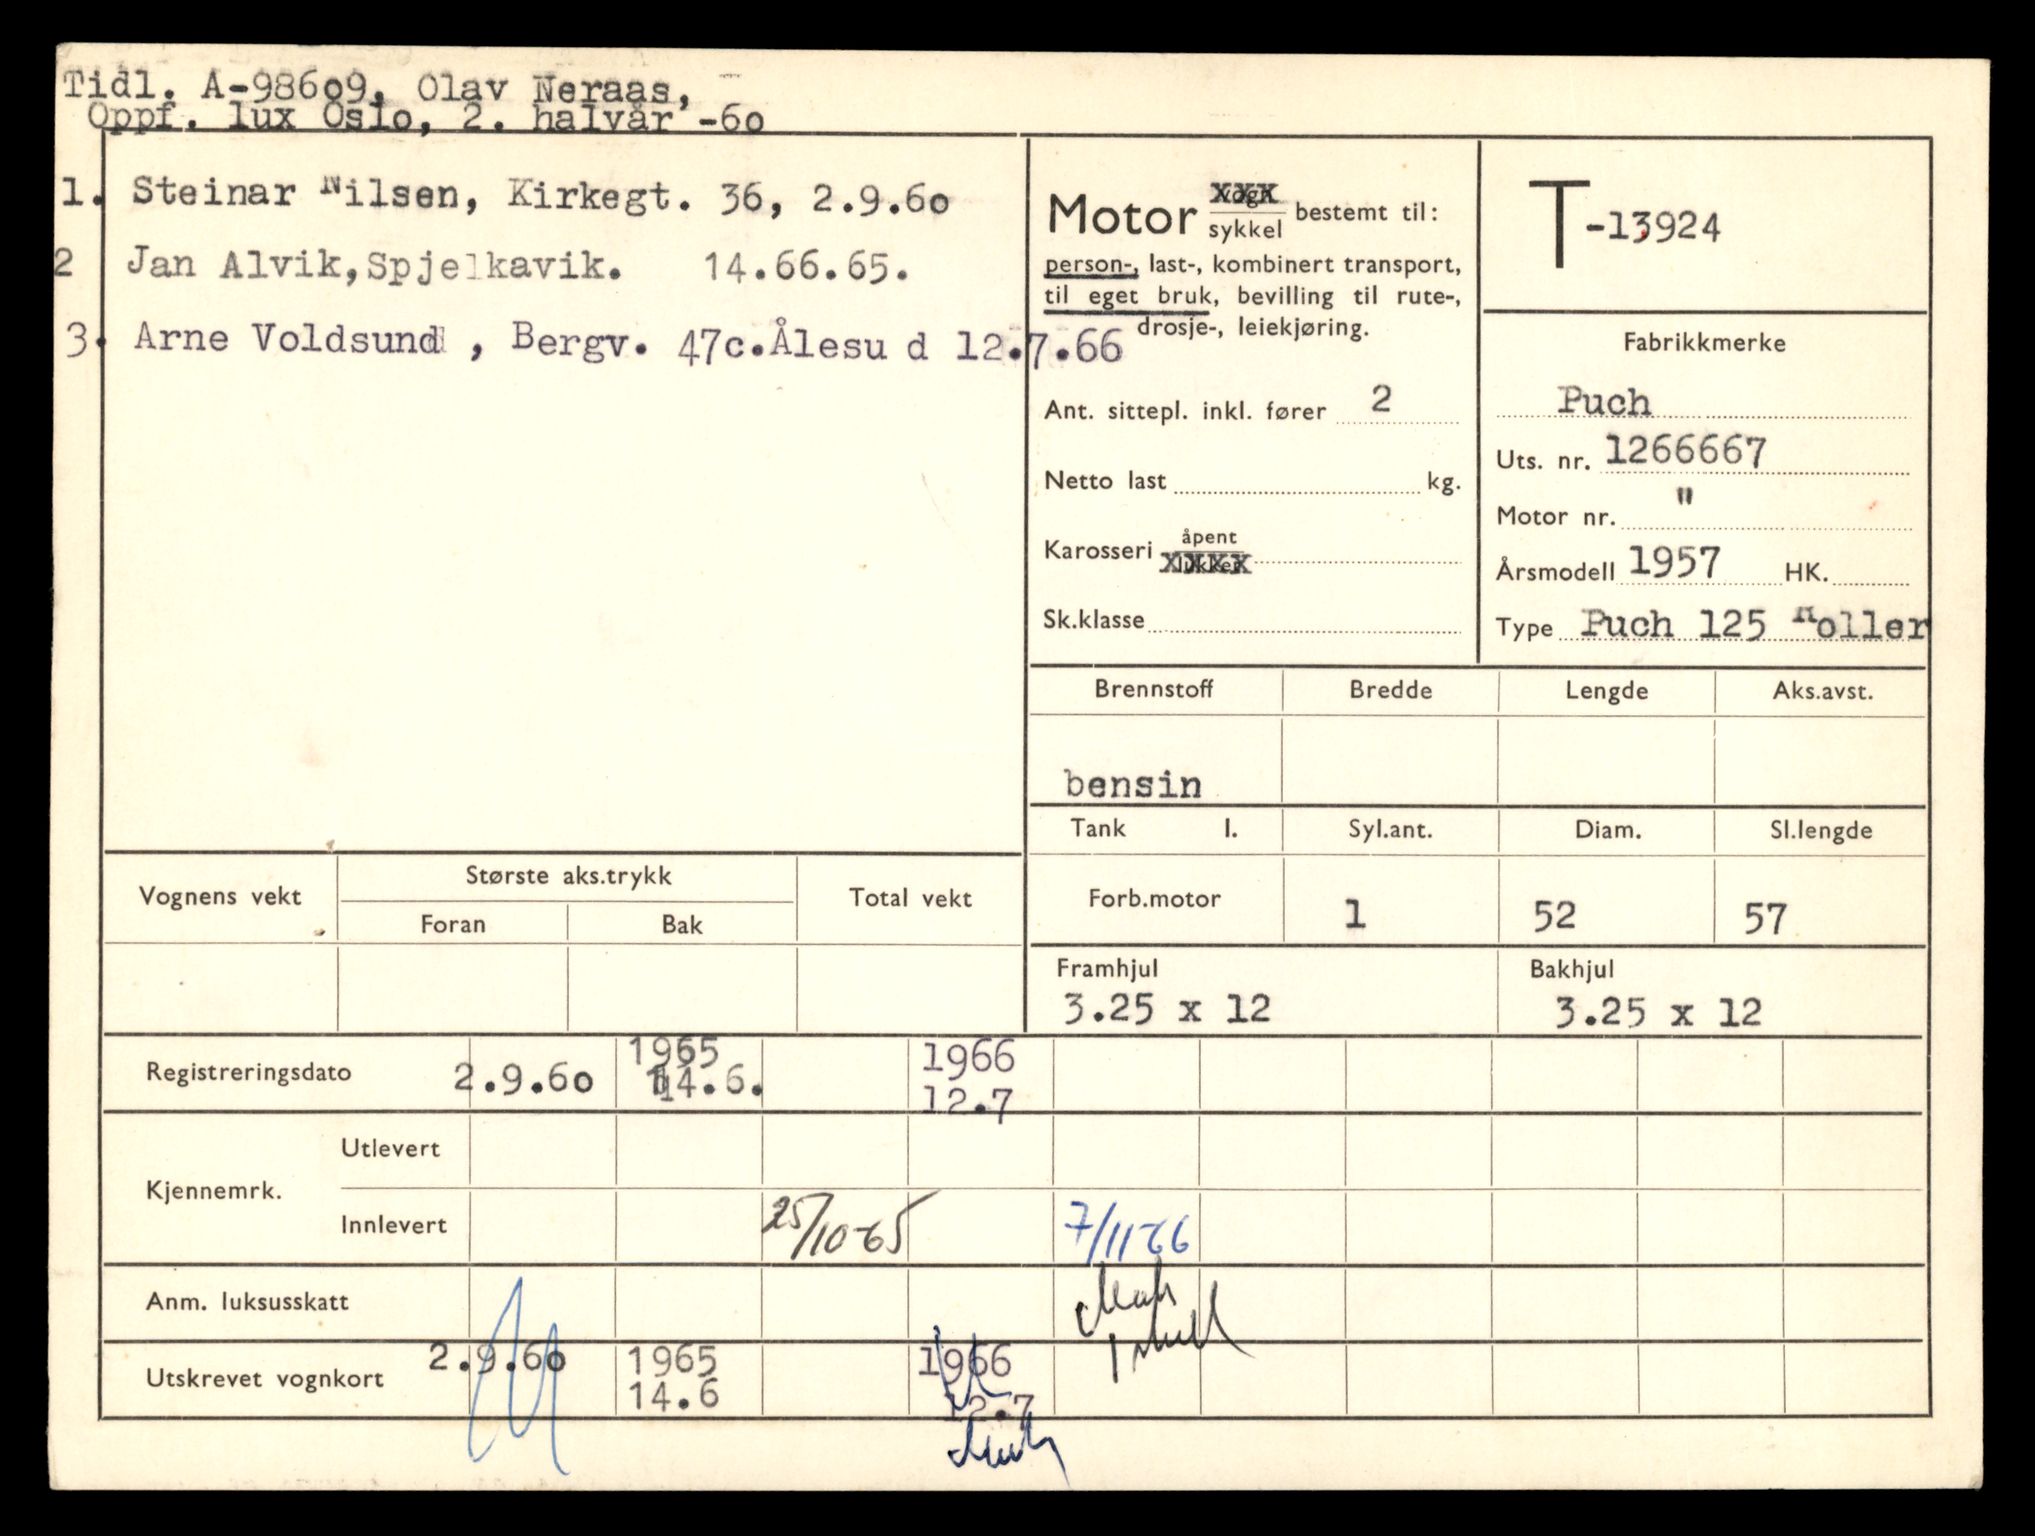 Tidl. A-98609, Olav Neraas,
Oppf. lux Oslo, 2. halvår -60
1. Steinar Nilsen, Kirkegt. 36, 2.9.60
2 Jan Alvik, Spjelkavik. 14.66.65.
3. Arne Voldsund , Bergv. 47c.Ålesu d 12.7.66
Motor vogn sykkel bestemt til:
person-, last-, kombinert transport,
til eget bruk, bevilling til rute-,
drosje-, leiekjøring.
Ant. sittepl. inkl. fører 2
Netto last kg.
Karosseri åpent lukket
Sk.klasse
T-13924
Fabrikkmerke
Puch
Uts. nr. 1266667
Motor nr. "
Årsmodell 1957 HK.
Type Puch 125 Roller
Brennstoff Bredde Lengde Aks.avst.
bensin
Tank l. Syl.ant. Diam. Sl.lengde
Forb.motor 1 52 57
Framhjul Bakhjul
3.25 x 12 3.25 x 12
Vognens vekt Største aks.trykk Total vekt
Foran Bak
Registreringsdato 2.9.60 1965 14.6. 1966 12.7
Kjennemrk. Utlevert
Innlevert 25/10-65 7/11-66
Anm. luksusskatt
Utskrevet vognkort 2.9.60 1965 14.6 1966 12.7